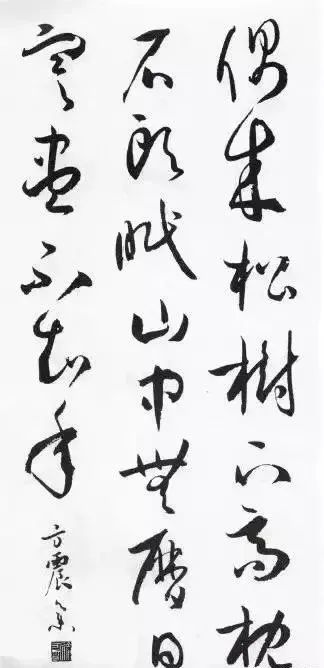 偶來松樹下高枕
石頭眠山中無曆日
寒盡不知年
方震